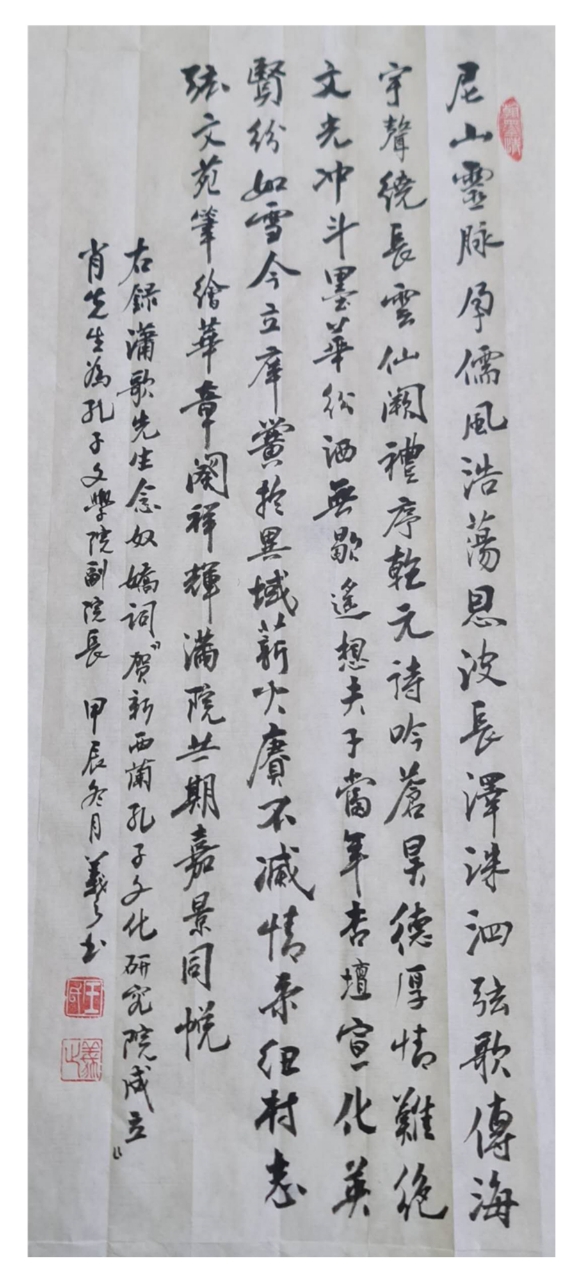 尼山靈脉孕儒風浩蕩恩波長澤洙泗弦歌傳海
宇聲繞長雲仙闕禮序乾元詩吟蒼昊德厚情難絶
文光冲斗墨華紛洒無歇遙想夫子當年杏壇宣化英
賢紛如雪今立庠黌於異域薪火賡不減情牽紐村志
弦文苑筆繪華章闕祥輝滿院共期嘉景同悅
右録瀟歌先生念奴嬌詞"贺新西蘭孔子文化研究院成立"
肖先生為孔子文學院副院長 甲辰冬月 羲之书